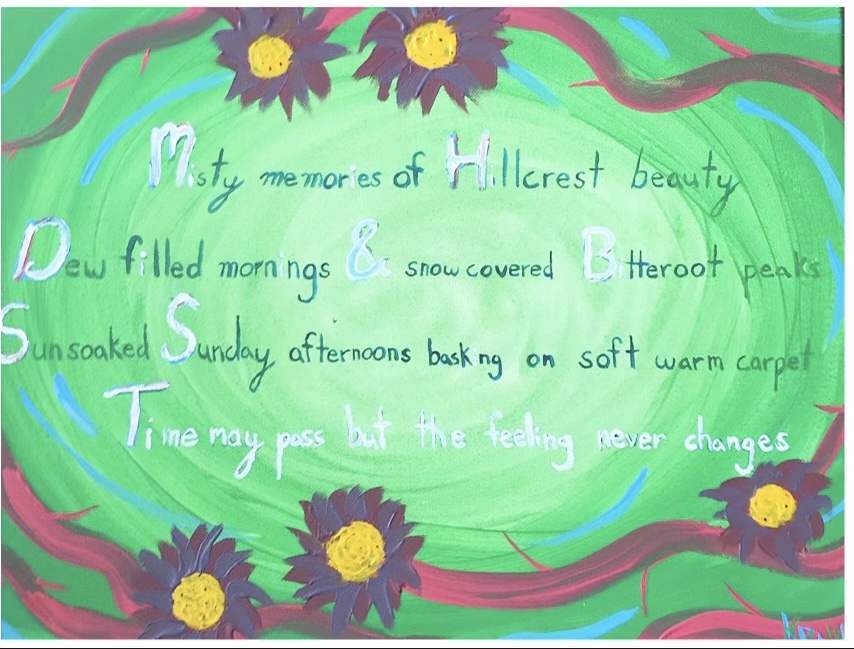 Misty memories of Hillcrest beauty
Dew filled mornings & snow covered Bitteroot peaks
Sunsoaked Sunday afternoons basking on soft warm carpet
Time may pass but the feeling never changes